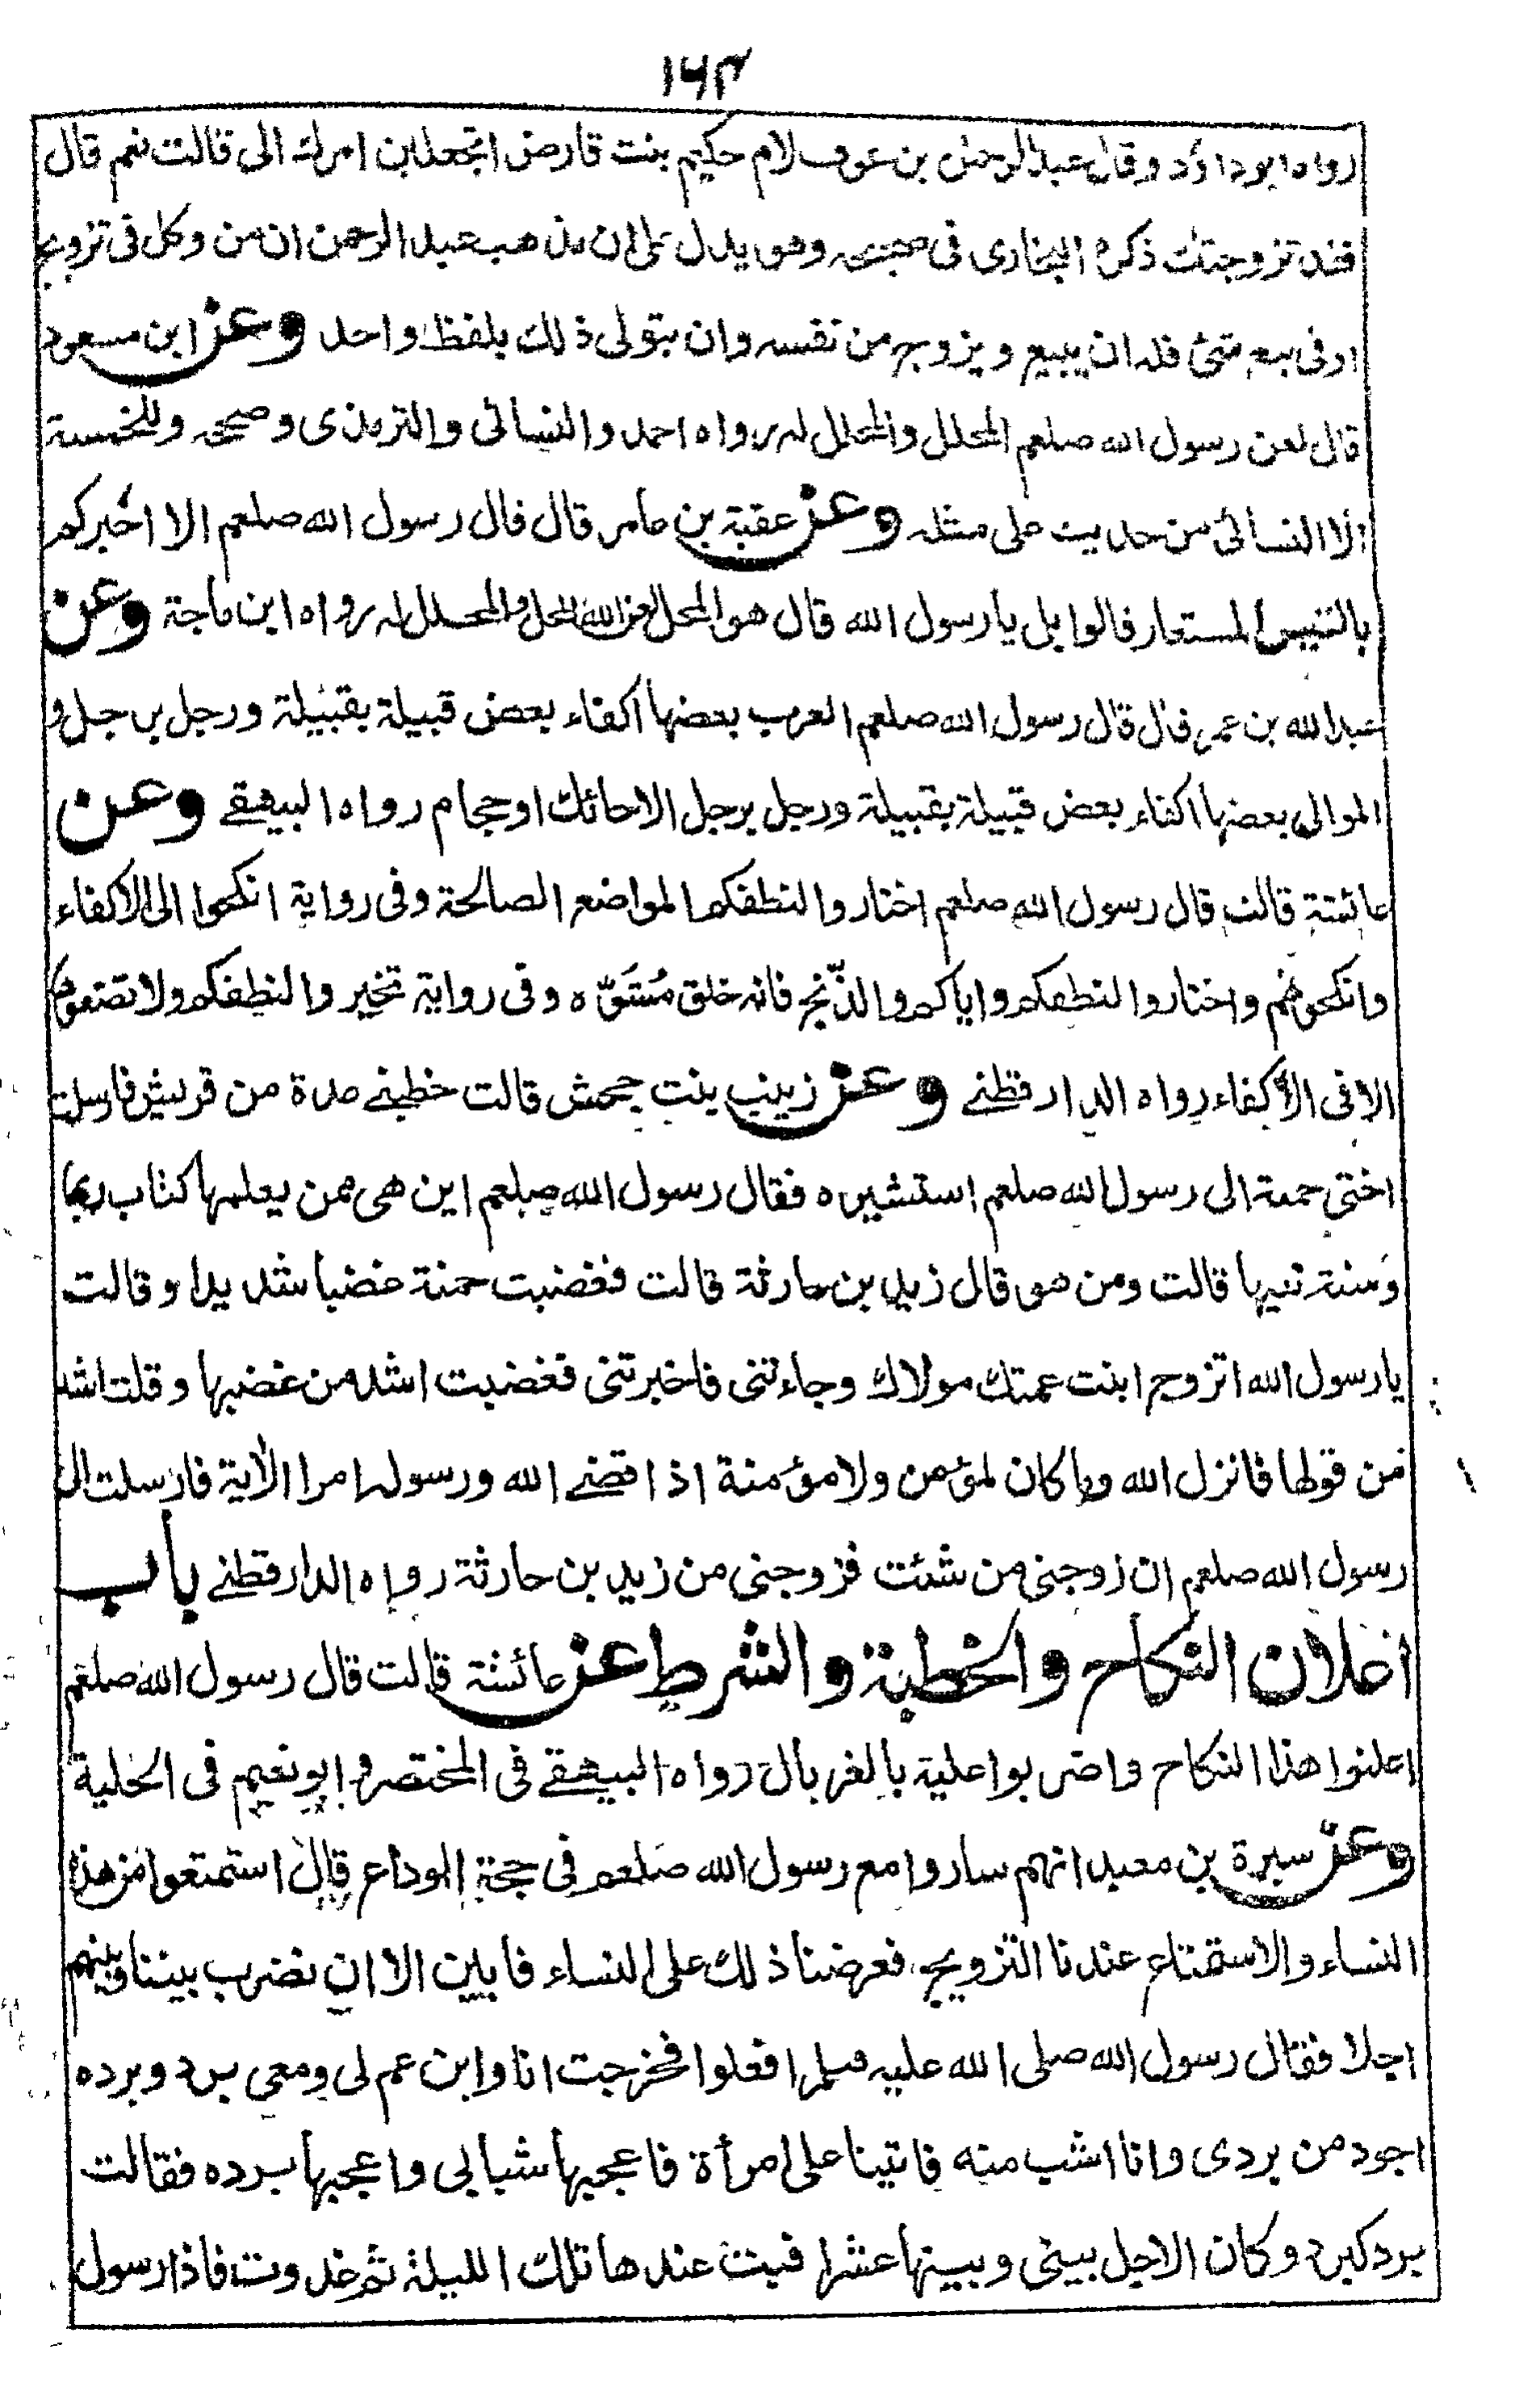 ١٦٣
رواه ابوداؤد وقال عبدالرحمن بن عوف لام حكيم بنت قارض اتجعلين امرك الى قالت نعم قال
فقد تزوجتك ذكره البخارى فى صحيحه وهو يدل على ان مذهب عبدالرحمن ان من وكل فى تزويج
اوفى بيع شئ فله ان يبيع ويزوج من نفسه وان يتولى ذلك بلفظ واحد وعن ابن مسعود
قال لعن رسول الله صلعم المحلل والمحلل له رواه احمد والنسائى والترمذى وصححه وللخمسة
الا النسائى من حديث على مثله وعن عقبة بن عامر قال قال رسول الله صلعم الا اخبركم
بالتيس المستعار قالوا بلى يارسول الله قال هو المحل لعن الله المحل والمحلل له رواه ابن ماجة وعن
عبدالله بن عمر قال قال رسول الله صلعم العرب بعضها اكفاء بعض قبيلة بقبيلة ورجل برجل و
الموالى بعضها اكفاء بعض قبيلة بقبيلة ورجل برجل الاحائك اوحجام رواه البيهقے وعن
عائشة قالت قال رسول الله صلعم اختاروا لنطفكم المواضع الصالحة وفى رواية انكحوا الى الاكفاء
وانكحوهم واختاروا لنطفكم واياكم والزنج فانه خلق مشوّه وفى رواية تخيروا لنطفكم ولا تضعوها
الا فى الاكفاء رواه الدارقطنے وعن زينب بنت جحش قالت خطبنے عدة من قريش فارسلت
اختى حمنة الى رسول الله صلعم استشيره فقال رسول الله صلعم اين هى ممن يعلمها كتاب ربها
وسنة نبيها قالت ومن هو قال زيد بن حارثة قالت فغضبت حمنة غضبا شديدا وقالت
يارسول الله اتزوج ابنت عمتك مولاك وجاءتنى فاخبرتنى فغضبت اشد من غضبها وقلت اشد
من قولها فانزل الله وما كان لمؤمن ولا مؤمنة اذا قضے الله ورسوله امرا الآية فارسلت الى
رسول الله صلعم ان زوجنى من شئت فزوجنى من زيد بن حارثة رواه الدارقطنے باب
اعلان النكاح والخطبة والشرط عن عائشة قالت قال رسول الله صلعم
اعلنوا هذا النكاح واضربوا علية بالغربال رواه البيهقے فى المختصر وابونعيم فى الحلية
وعن سبرة بن معبد انهم ساروا مع رسول الله صلعم فى حجة الوداع قال استمتعوا من هذا
النساء والاستمتاع عندنا التزويج فعرضنا ذلك على النساء فابين الا ان نضرب بيننا وبينهم
اجلا فقال رسول الله صلى الله عليه وسلم افعلوا فخرجت انا وابن عم لى ومعى برد وبرده
اجود من بردى وانا اشب منه فاتينا على امرأة فاعجبها شبابى واعجبها برده فقالت
برد كبرد وكان الاجل بينى وبينها عشرا فبت عندها تلك الليلة ثم غدوت فاذا رسول